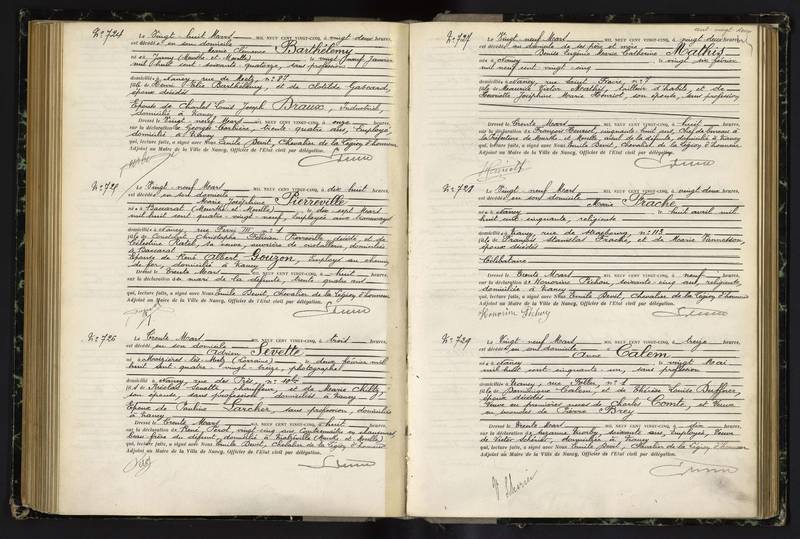 N° 724
Le Vingt huit Mars MIL NEUF CENT VINGT-CINQ, à vingt deux heures,
est décédée en son domicile
Marie Clémence Barthélemy
née à Jarny (Meurthe et Moselle) le vingt Janvier
mil huit cent soixante quatorze, sans profession
domiciliée à Nancy, rue de Metz, n° 87
fille de Henri Félix Barthélemy, et de Clotilde
époux décédés
Epouse de Charles Louis Joseph Braux, Industriel,
domicilié à Nancy
Dressé le Vingt-neuf Mars MIL NEUF CENT VINGT-CINQ, à onze heures,
sur la déclaration de Georges trente quatre ans, Employé
domicilié à Nancy
qui, lecture faite, a signé avec Nous Emile Benit, Chevalier de la Légion d'honneur
Adjoint au Maire de la Ville de Nancy, Officier de l'Etat civil par délégation.
N° 725
Le Vingt-neuf Mars MIL NEUF CENT VINGT-CINQ, à dix huit heures,
est décédée en son domicile
Marie Joséphine Pierreville
née à Baccarat (Meurthe et Moselle) le dix sept Mars
mil huit cent quatre vingt-neuf, Employée aux tramways
domiciliée à Nancy, rue n° 1
fille de Constant Christophe Félicien Pierreville décédé et de
Célestine sa veuve, ouvrière de cristallerie, domiciliée
à Baccarat
Epouse de René Albert Gouzon, Employé au chemin
de fer, domicilié à Nancy
Dressé le Trente Mars MIL NEUF CENT VINGT-CINQ, à huit heures,
sur la déclaration du mari de la défunte, trente quatre ans
qui, lecture faite, a signé avec Nous Emile Benit, Chevalier de la Légion d'honneur
Adjoint au Maire de la Ville de Nancy, Officier de l'Etat civil par délégation.
N° 726
Le Trente Mars MIL NEUF CENT VINGT-CINQ, à trois heures,
est décédé en son domicile
Adrien Sevette
né à Maizières les Metz (Lorraine) le deux février mil
huit cent quatre-vingt-treize, photographe
domicilié à Nancy, rue de n° 10 bis
fils de Nicolas Sevette, chauffeur, et de Marie
son épouse, sans profession, domiciliés à Nancy
Epoux de Pauline Larcher, sans profession, domiciliée
à Nancy
Dressé le Trente Mars MIL NEUF CENT VINGT-CINQ, à huit heures,
sur la déclaration de René vingt cinq ans, Contremaître en chaussures,
beau frère du défunt, domicilié à (Meurthe et Moselle)
qui, lecture faite, a signé avec Nous Emile Benit, Chevalier de la Légion d'honneur
Adjoint au Maire de la Ville de Nancy, Officier de l'Etat civil par délégation.
cent vingt deux
N° 727
Le Vingt neuf Mars MIL NEUF CENT VINGT-CINQ, à vingt deux heures,
est décédée au domicile de ses père et mère
Denise Eugénie Marie Catherine Mathis
née à Nancy le vingt six février
mil neuf cent vingt cinq
domiciliée à Nancy, rue Saint n° 4
fille de Maurice Victor Mathis, tailleur d'habits, et de
Henriette Joséphine Marie Henriot, son épouse, sans profession
Dressé le Trente Mars MIL NEUF CENT VINGT-CINQ, à huit heures,
sur la déclaration de François Henriot, cinquante huit ans, Chef de bureau à
la Préfecture de Meurthe et Moselle, aïeul de la défunte, domicilié à Nancy
qui, lecture faite, a signé avec Nous Emile Benit, Chevalier de la Légion d'honneur
Adjoint au Maire de la Ville de Nancy, Officier de l'Etat civil par délégation.
Henriot
N° 728
Le Vingt-neuf Mars MIL NEUF CENT VINGT-CINQ, à vingt deux heures,
est décédée en son domicile
Marie Frache
née à Nancy le huit avril mil
huit cent cinquante, religieuse
domiciliée à Nancy, rue de Strasbourg, n° 113
fille de François Stanislas Frache, et de Marie Vannesson,
époux décédés
Célibataire
Dressé le Trente Mars MIL NEUF CENT VINGT-CINQ, à neuf heures,
sur la déclaration de Honorine Pichon, soixante cinq ans, religieuse,
domiciliée à Nancy
qui, lecture faite, a signé avec Nous Emile Benit, Chevalier de la Légion d'honneur
Adjoint au Maire de la Ville de Nancy, Officier de l'Etat civil par délégation.
Honorine Pichon
N° 729
Le Vingt neuf Mars MIL NEUF CENT VINGT-CINQ, à treize heures,
est décédée en son domicile
Anne Calem
née à Nancy le vingt Mai
mil huit cent cinquante un, sans profession
domiciliée à Nancy, rue n° 1
fille de Dominique Calem, et de Thérèse Louise
époux décédés
Veuve en premières noces de Charles Comte, et Veuve
en secondes de Pierre Brey
Dressé le Trente Mars MIL NEUF CENT VINGT-CINQ, à dix heures,
sur la déclaration de Suzanne soixante ans, Employée, Veuve
de Victor domiciliée à Nancy
qui, lecture faite, a signé avec Nous Emile Benit, Chevalier de la Légion d'honneur
Adjoint au Maire de la Ville de Nancy, Officier de l'Etat civil par délégation.